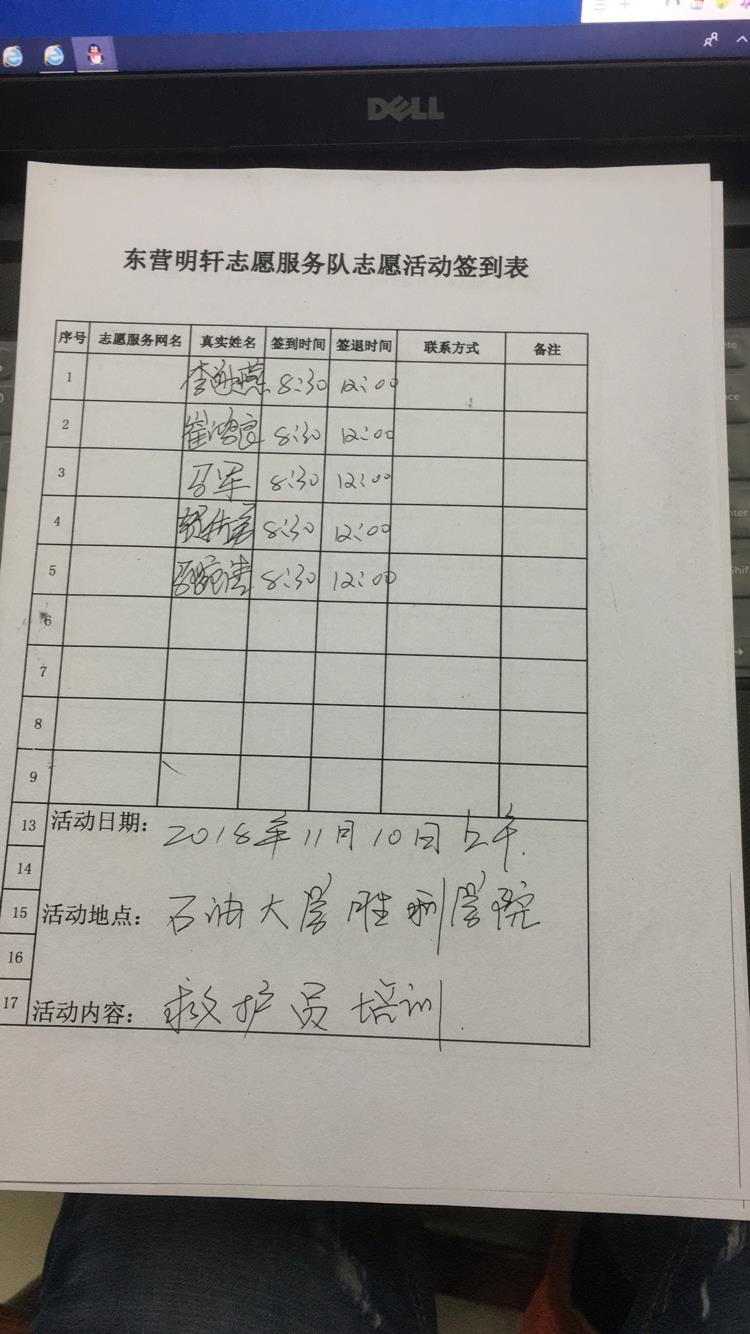 DELL
东营明轩志愿服务队志愿活动签到表
序号 志愿服务网名 真实姓名 签到时间 签退时间 联系方式 备注
1 8:30 12:00
2 崔鸿良 8:30 12:00
3 马军 8:30 12:00
4 8:30 12:00
5 8:30 12:00
6
7
8
9
13 活动日期: 2018年11月10日上午.
14
15 活动地点: 石油大学胜利学院
16
17 活动内容: 救护员培训.